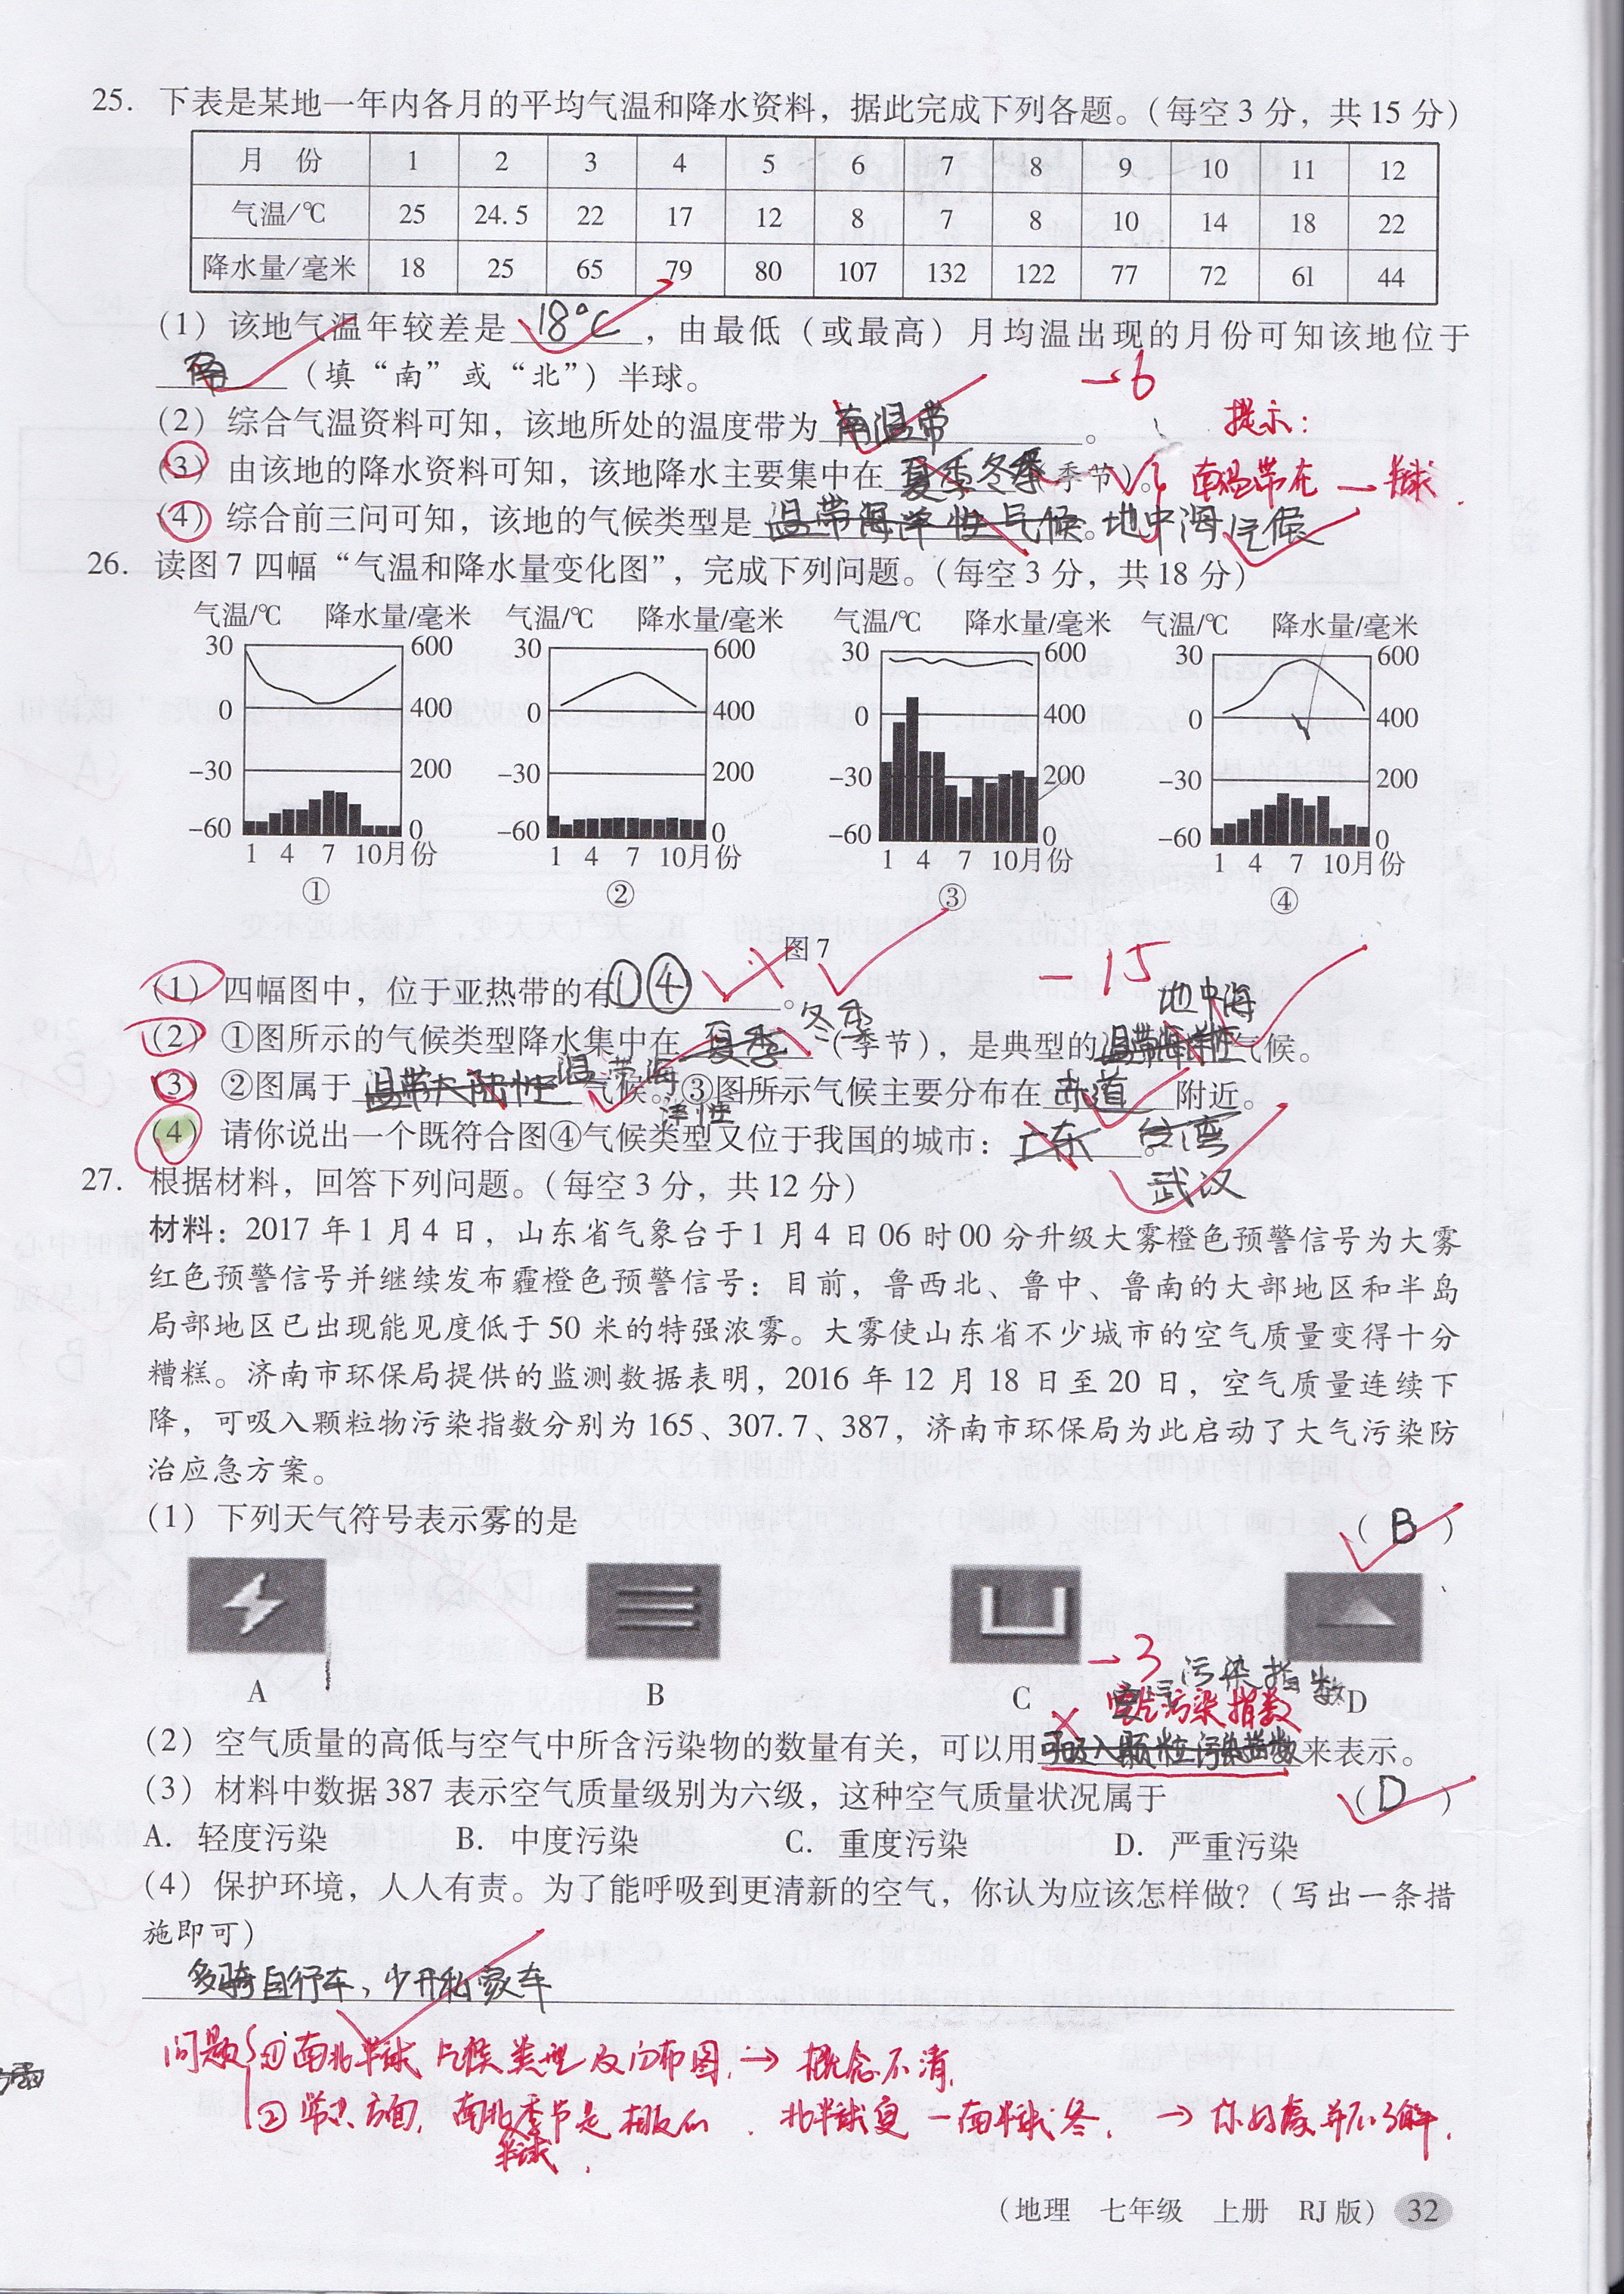 25. 下表是某地一年内各月的平均气温和降水资料，据此完成下列各题。（每空3分，共15分）
月 份 1 2 3 4 5 6 7 8 9 10 11 12
气温/℃ 25 24.5 22 17 12 8 7 8 10 14 18 22
降水量/毫米 18 25 65 79 80 107 132 122 77 72 61 44
（1）该地气温年较差是18°C，由最低（或最高）月均温出现的月份可知该地位于
南（填“南”或“北”）半球。
-6
（2）综合气温资料可知，该地所处的温度带为南温带。
提示：
（3）由该地的降水资料可知，该地降水主要集中在夏季冬季（季节）。
南温带在 — 半球
（4）综合前三问可知，该地的气候类型是温带海洋性气候。地中海气候
26. 读图7四幅“气温和降水量变化图”，完成下列问题。（每空3分，共18分）
气温/℃ 降水量/毫米 气温/℃ 降水量/毫米 气温/℃ 降水量/毫米 气温/℃ 降水量/毫米
30 600 30 600 30 600 30 600
0 400 0 400 0 400 0 400
-30 200 -30 200 -30 200 -30 200
-60 0 -60 0 -60 0 -60 0
1 4 7 10月份 1 4 7 10月份 1 4 7 10月份 1 4 7 10月份
① ② ③ ④
图7
-15
（1）四幅图中，位于亚热带的有①④。
冬季
地中海
（2）①图所示的气候类型降水集中在夏季（季节），是典型的温带海洋性气候。
温带海洋性
（3）②图属于温带大陆性气候。③图所示气候主要分布在赤道附近。
（4）请你说出一个既符合图④气候类型又位于我国的城市：广东。台湾
武汉
27. 根据材料，回答下列问题。（每空3分，共12分）
材料：2017年1月4日，山东省气象台于1月4日06时00分升级大雾橙色预警信号为大雾
红色预警信号并继续发布霾橙色预警信号：目前，鲁西北、鲁中、鲁南的大部地区和半岛
局部地区已出现能见度低于50米的特强浓雾。大雾使山东省不少城市的空气质量变得十分
糟糕。济南市环保局提供的监测数据表明，2016年12月18日至20日，空气质量连续下
降，可吸入颗粒物污染指数分别为165、307.7、387，济南市环保局为此启动了大气污染防
治应急方案。
（1）下列天气符号表示雾的是 （B）
A B C D
-3
空气污染指数
空气污染指数
（2）空气质量的高低与空气中所含污染物的数量有关，可以用可吸入颗粒污染指数来表示。
（3）材料中数据387表示空气质量级别为六级，这种空气质量状况属于 （D）
A. 轻度污染 B. 中度污染 C. 重度污染 D. 严重污染
（4）保护环境，人人有责。为了能呼吸到更清新的空气，你认为应该怎样做？（写出一条措
施即可）
多骑自行车，少开私家车
问题 ①南北半球气候类型及分布图，→ 概念不清，
②常识方面，南北半球季节是相反的，北半球夏—南半球冬，→ 你好像并不了解，
（地理 七年级 上册 RJ版） 32